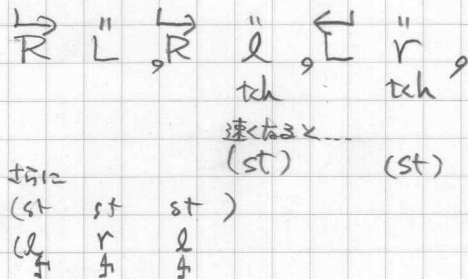 R L , R l , L r ,
tch tch
速くなると...
(st) (st)
さらに
(st st st )
(l r l